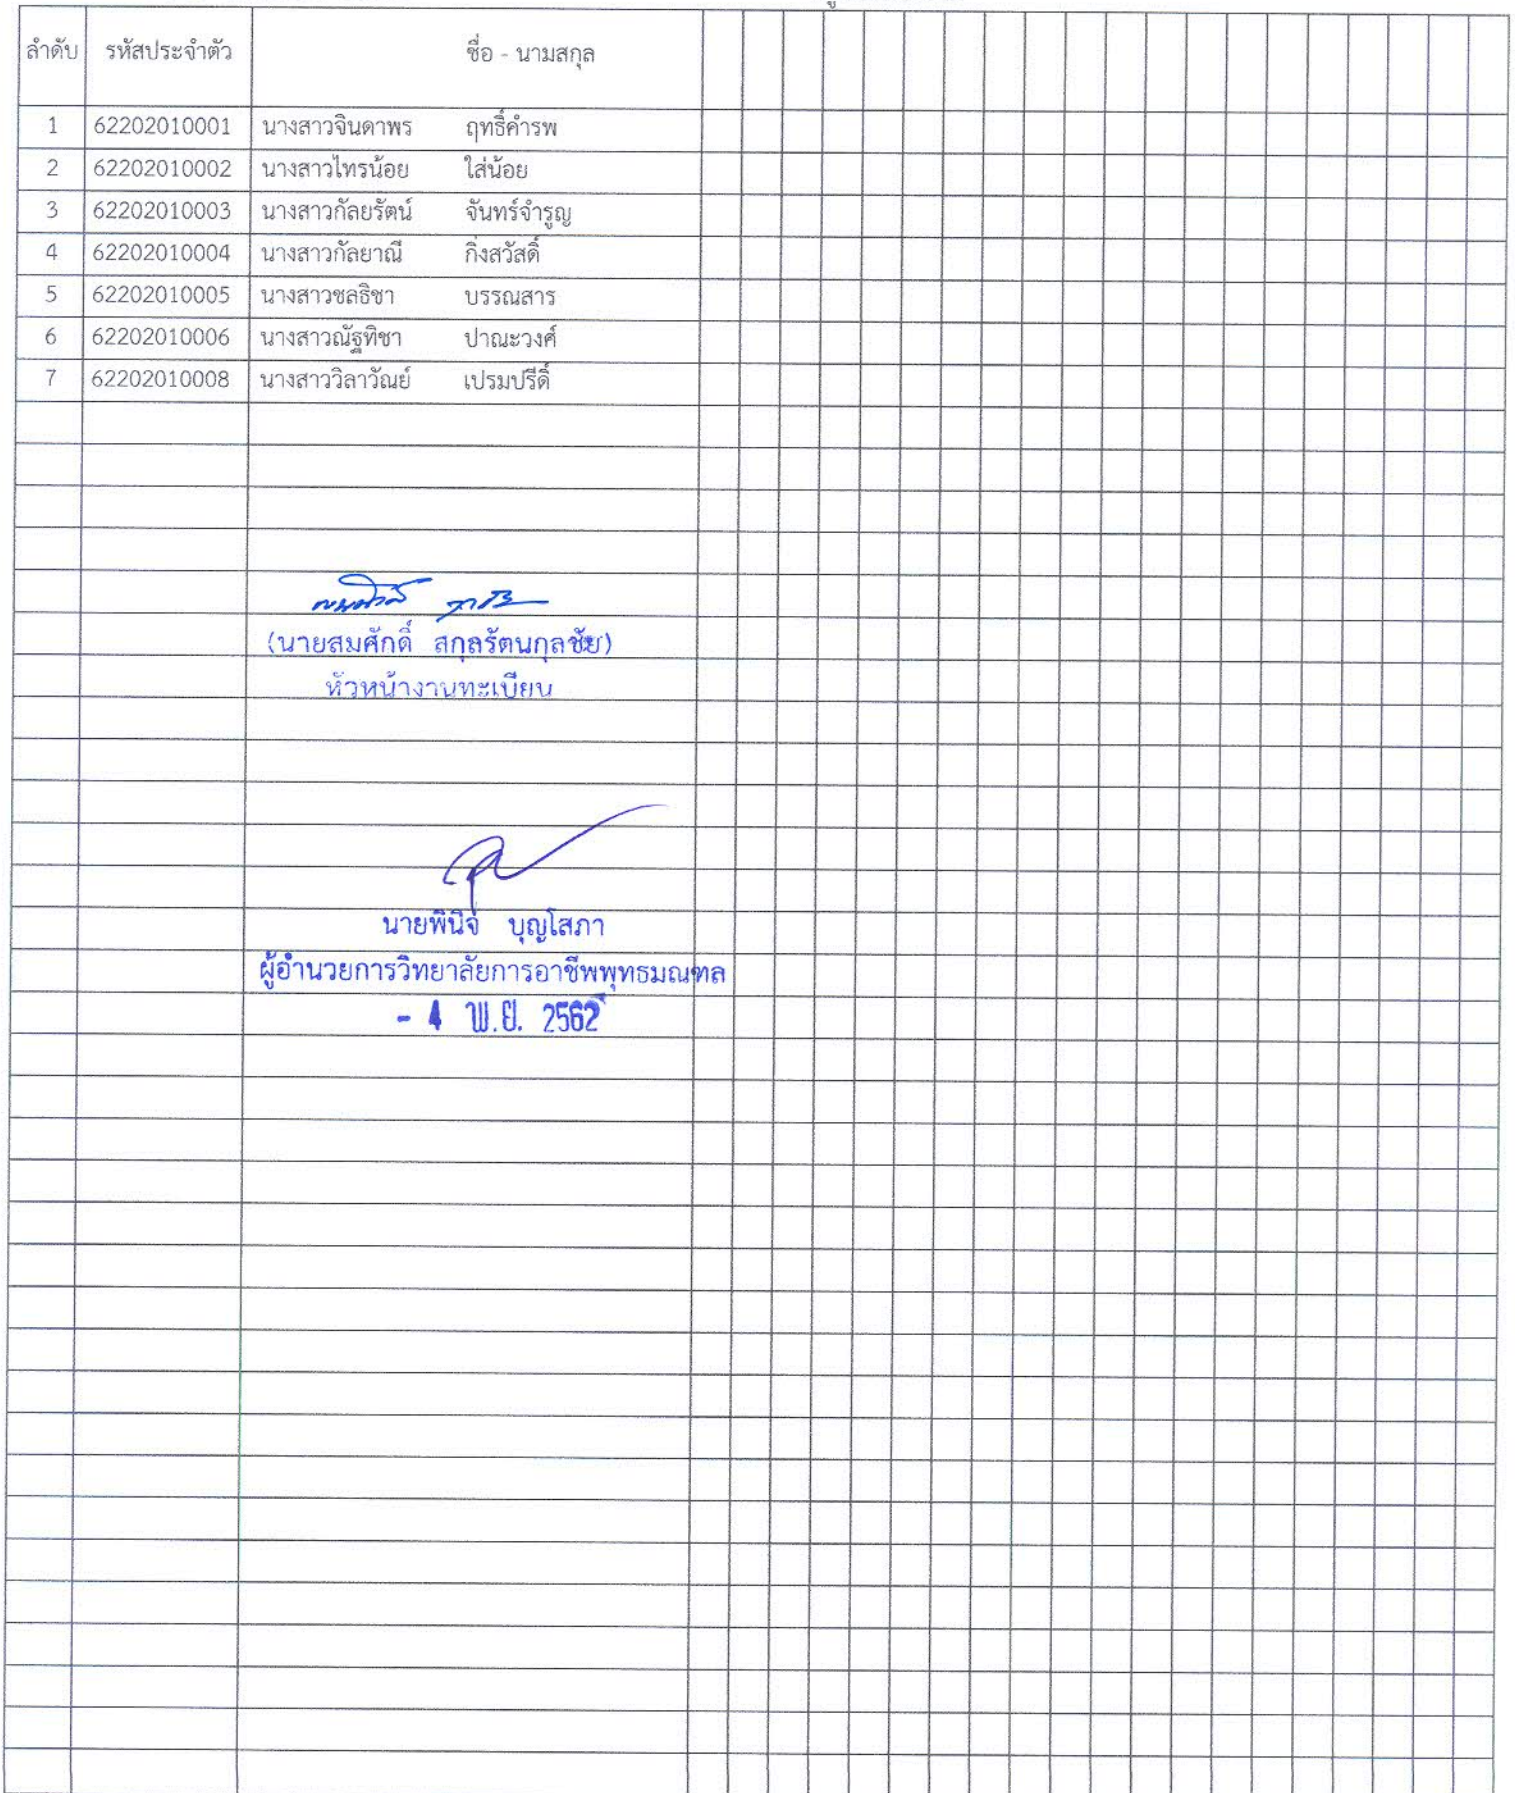 ลำดับ รหัสประจำตัว ชื่อ - นามสกุล
1 62202010001 นางสาวจินดาพร ฤทธิ์คำรพ
2 62202010002 นางสาวไทรน้อย ใส่น้อย
3 62202010003 นางสาวกัลยรัตน์ จันทร์จำรูญ
4 62202010004 นางสาวกัลยาณี กิ่งสวัสดิ์
5 62202010005 นางสาวชลธิชา บรรณสาร
6 62202010006 นางสาวณัฐทิชา ปาณะวงศ์
7 62202010008 นางสาววิลาวัณย์ เปรมปรีดิ์
(นายสมศักดิ์ สกุลรัตนกุลชัย)
หัวหน้างานทะเบียน
นายพินิจ บุญโสภา
ผู้อำนวยการวิทยาลัยการอาชีพพุทธมณฑล
- 4 พ.ย. 2562